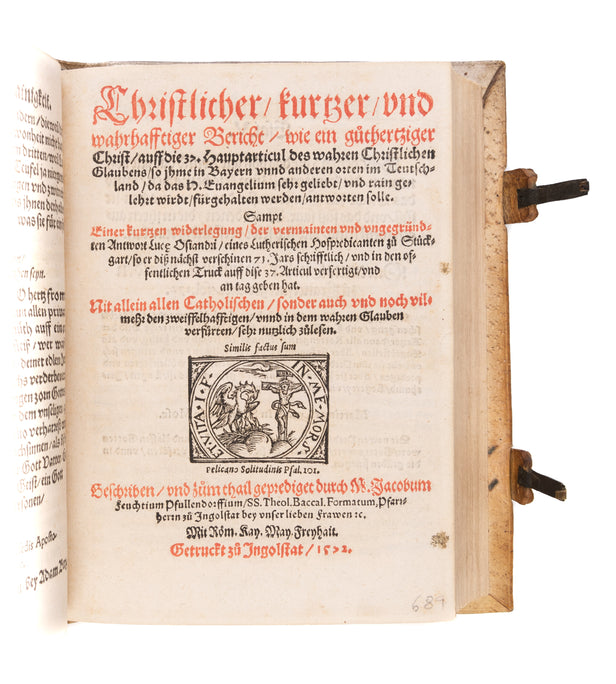 Christlicher / kurtzer / vnd
wahrhafftiger Bericht / wie ein gůthertziger
Christ / auff die 37. Hauptarticul des wahren Christlichen
Glaubens / so jhme in Bayern vnnd anderen orten im Teutsch-
land / da das H. Euangelium sehr geliebt / vnd rain ge-
lehrt wirdt / fürgehalten werden / antworten solle.
Sampt
Einer kurtzen widerlegung / der vermainten vnd vngegründ-
ten Antwort Lucę Osiandri / eines Lutherischen Hofpredicanten zů Stůck-
gart / so er diß nächst verschinen 71. Jars schrifftlich / vnd in den of-
fentlichen Truck auff dise 37. Articul verfertigt / vnd
an tag geben hat.
Nit allein allen Catholischen / sonder auch vnd noch vil-
mehr den zweiffelhafftigen / vnnd in dem wahren Glauben
verfürten / sehr nutzlich zůlesen.
Similis factus sum
EN VITA I P IN ME MORS
Pelicano Solitudinis Psal. 101.
Beschriben / vnd zům thail geprediget durch M. Jacobum
Feuchtium Pfullendorffium / SS. Theol. Baccal. Formatum, Pfarr-
herrn zů Ingolstat bey vnser lieben Frawen ꝛc.
Mit Röm. Kay. May. Freyhait.
Getruckt zů Ingolstat / 1572.
684